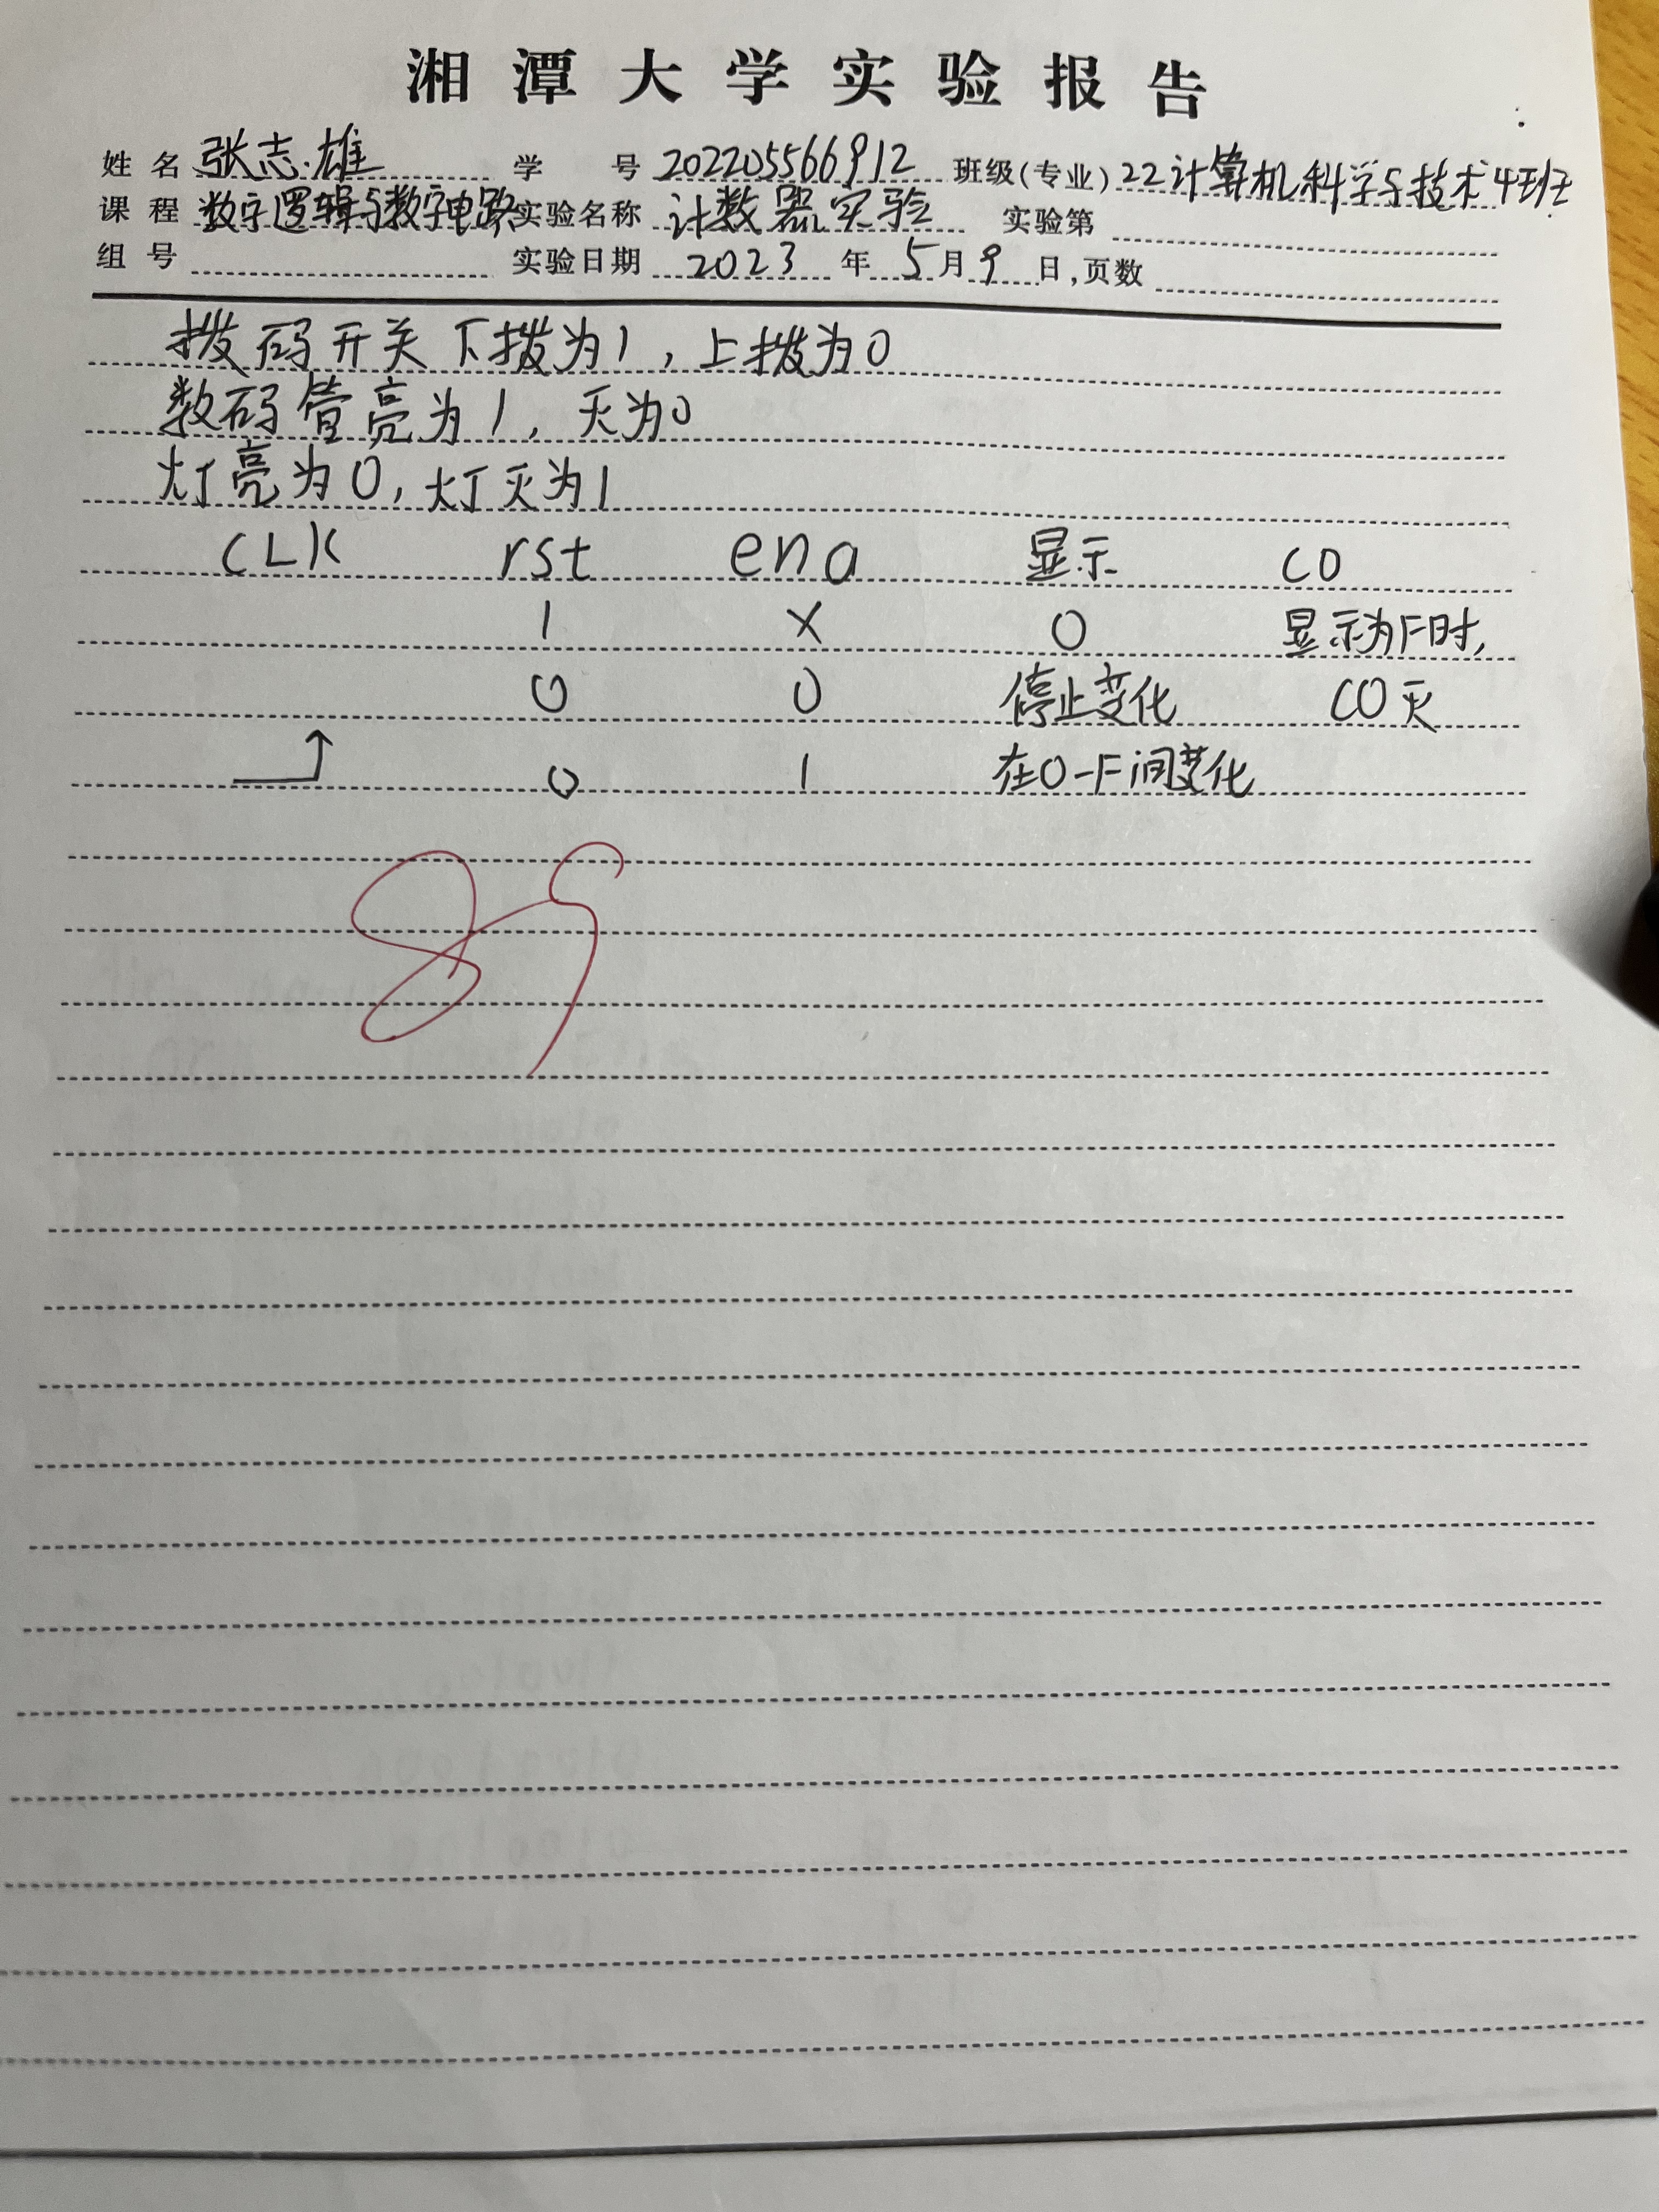 湘潭大学实验报告
姓名 张志雄 学号 202205566912 班级(专业) 22计算机科学与技术4班
课程 数字逻辑与数字电路 实验名称 计数器实验 实验第
组号 实验日期 2023 年 5 月 9 日,页数
拨码开关下拨为1,上拨为0
数码管亮为1,灭为0
灯亮为0,灯灭为1
CLK rst ena 显示 CO
1 X 0 显示为F时,
0 0 停止变化 CO灭
0 1 在0-F间变化